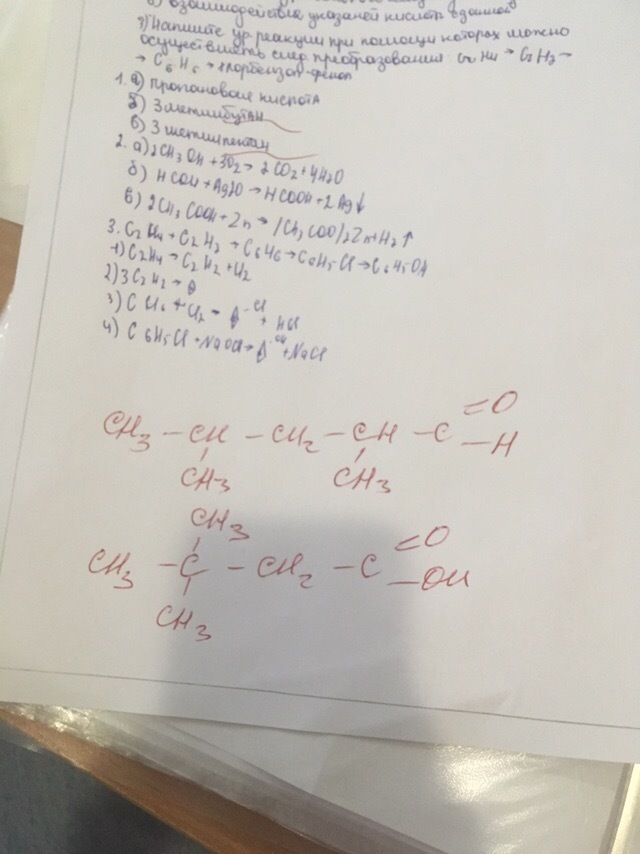 б) взаимодействие указаней кислот в данной
3) Напишите ур. реакции при помощи которых можно
осуществить след преобразования: C2H4 → C2H2 →
→ C6H6 → хлорбензол-фенол
1. а) Пропановая кислота
б) 3 метилбутан
в) 3 метилпентан
2. а) 2CH3OH + 3O2 → 2CO2 + 4H2O
б) HCOH + Ag2O → HCOOH + 2Ag↓
в) 2CH3COOH + Zn → (CH3COO)2Zn + H2↑
3. C2H4 → C2H2 → C6H6 → C6H5-Cl → C6H5OH
1) C2H4 → C2H2 + H2
2) 3C2H2 →
3) C6H6 + Cl2 → -Cl + HCl
4) C6H5Cl + NaOH → -OH + NaCl
CH3 – CH – CH2 – CH – C =O –H
CH3 CH3
CH3
CH3 – C – CH2 – C =O –OH
CH3